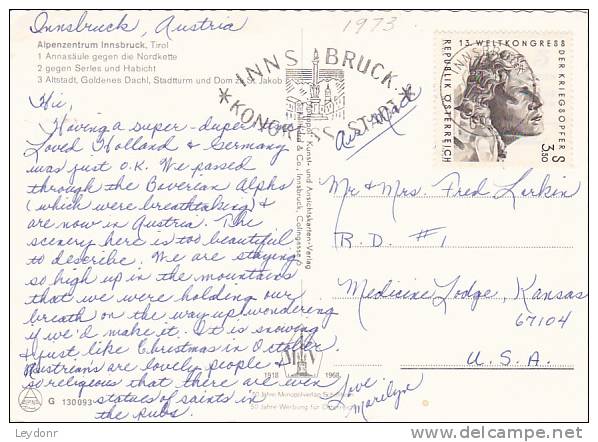 Innsbruck, Austria
1973
Alpenzentrum Innsbruck, Tirol
1 Annasäule gegen die Nordkette
2 gegen Serles und Habicht
3 Altstadt, Goldenes Dachl, Stadtturm und Dom zu St. Jakob
INNSBRUCK
KONGRESSSTADT
13. WELTKONGRESS
DER KRIEGSOPFER
REPUBLIK ÖSTERREICH
S
3.50
Air Mail
Hi,
Having a super-duper time
Loved Holland & Germany
was just O.K. We passed
through the Baverean Alphs
(which were breathtaking) &
are now in Austria. The
scenery here is too beautiful
to describe. We are staying
so high up in the mountains
that we were holding our
breath on the way up, wondering
if we'd make it. It is snowing
& just like Christmas in October.
Austrian's are lovely people &
so religious that there are even
statues of saints in
the pubs.
Love
Marilyn
Mr & Mrs. Fred Larkin
R.D. #1
Medicine Lodge, Kansas
67104
U.S.A.
Kunst- und Ansichtskarten-Verlag
& Co., Innsbruck, Colingasse
1918 1968
50 Jahre
50 Jahre Werbung für Österreich
G 130093
© Leydonr
www.delcampe.net